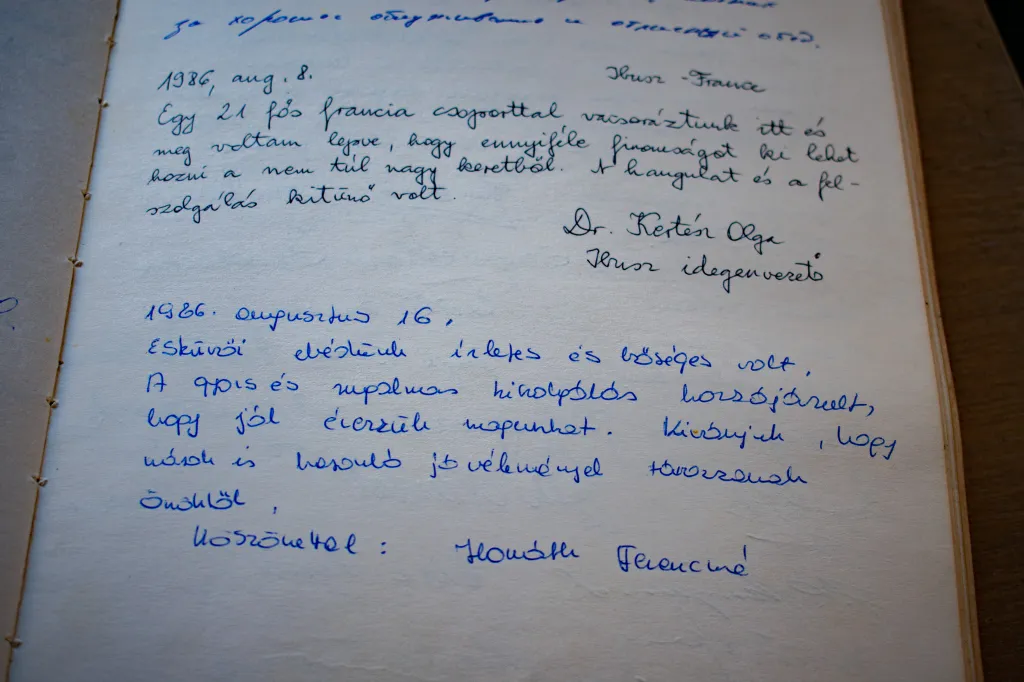 за хорошее обслуживание и отличный обед.
1986, aug. 8. Ibusz - France
Egy 21 fős francia csoporttal vacsoráztunk itt és
meg voltam lepve, hogy ennyiféle finomságot ki lehet
hozni a nem túl nagy keretből. A hangulat és a fel-
szolgálás kitűnő volt.
Dr. Kertész Olga
Ibusz idegenvezető
1986. augusztus 16.
Esküvői ebédünk ízletes és bőséges volt.
A gyors és rugalmas kiszolgálás hozzájárult,
hogy jól érezzük magunkat. Kívánjuk, hogy
mások is hasonló jó véleménnyel távozzanak
Önöktől.
Köszönettel: Horváth Ferencné